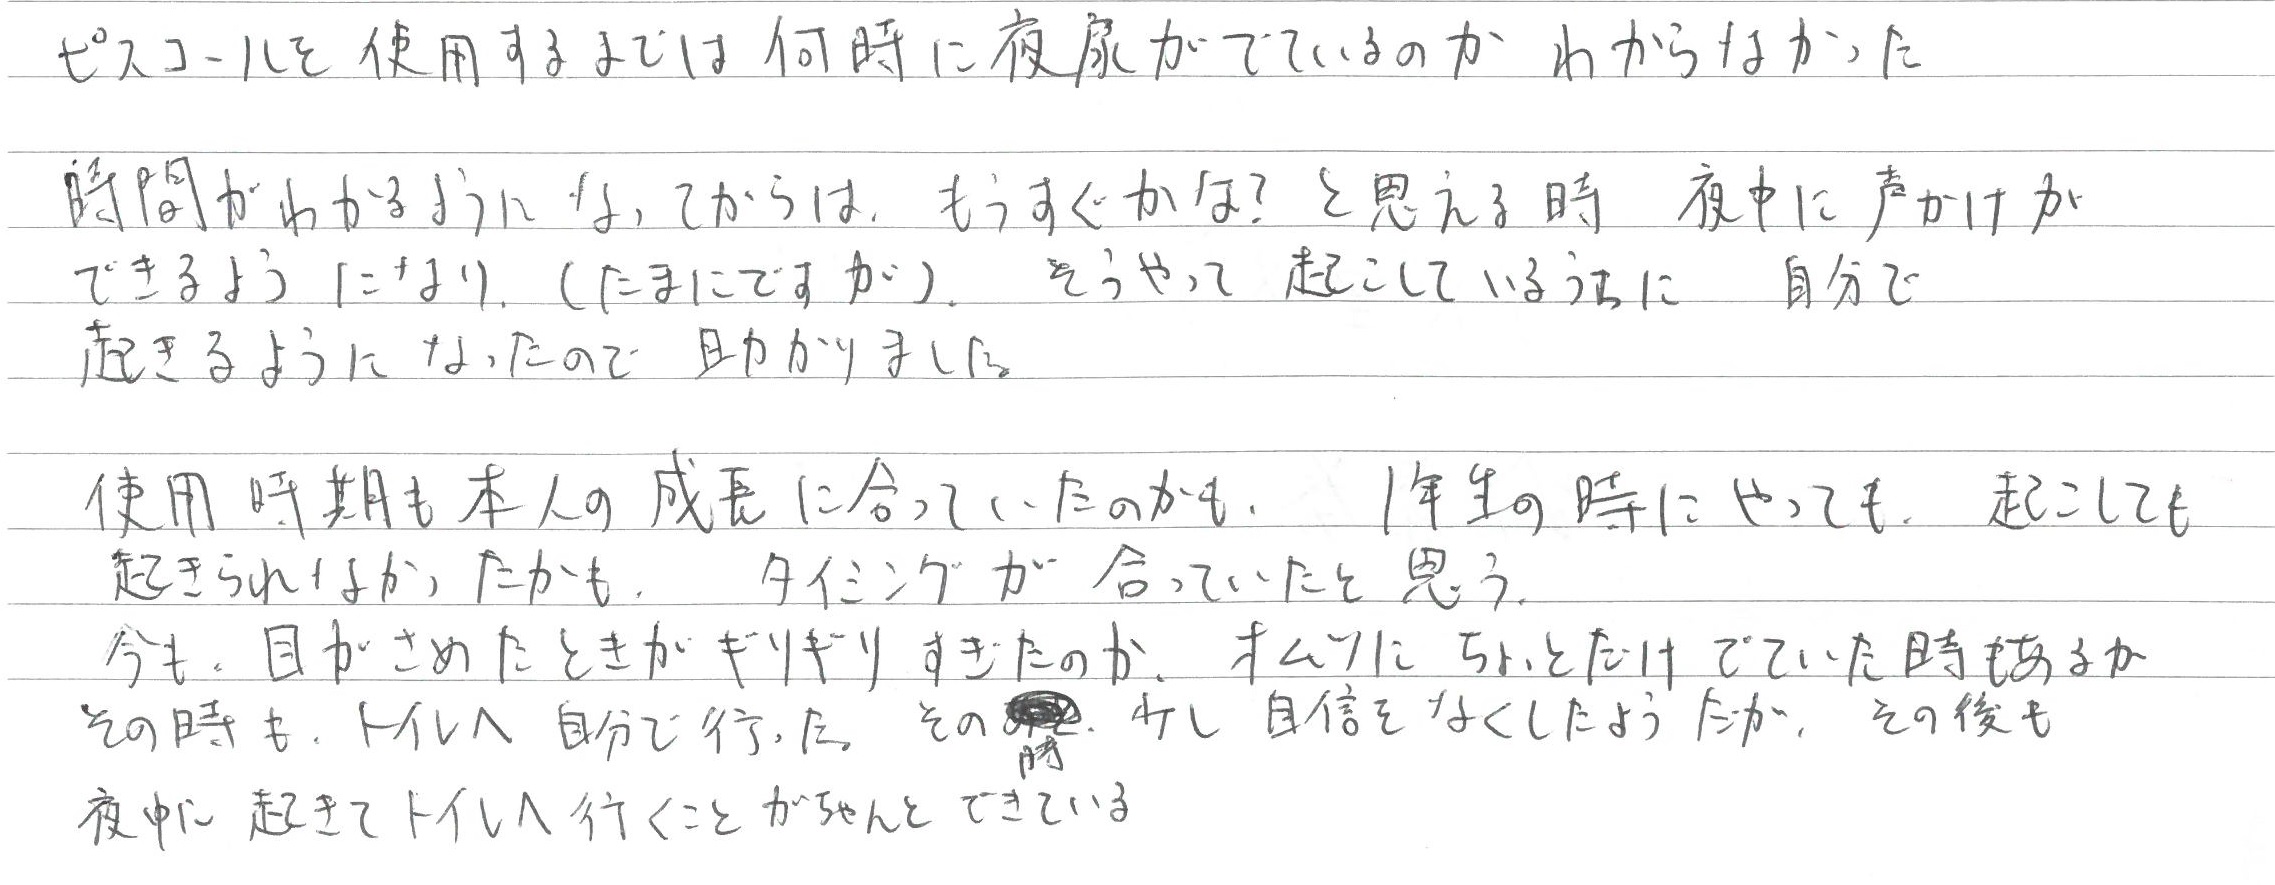 ピスコールを使用するまでは何時に夜尿がでているのか わからなかった
時間がわかるようになってからは、もうすぐかな？と思える時 夜中に声かけが
できるようになり、（たまにですが）、 そうやって起こしているうちに 自分で
起きるようになったので助かりました。
使用時期も本人の成長に合っていたのかも、 1年生の時にやっても、起こしても
起きられなかったかも、 タイミングが合っていたと思う、
今も、目がさめたときがギリギリすぎたのか、オムツにちょっとだけでていた時もあるが
その時も、トイレへ自分で行った。その時、少し自信をなくしたようだが、その後も
夜中に起きてトイレへ行くことがちゃんとできている